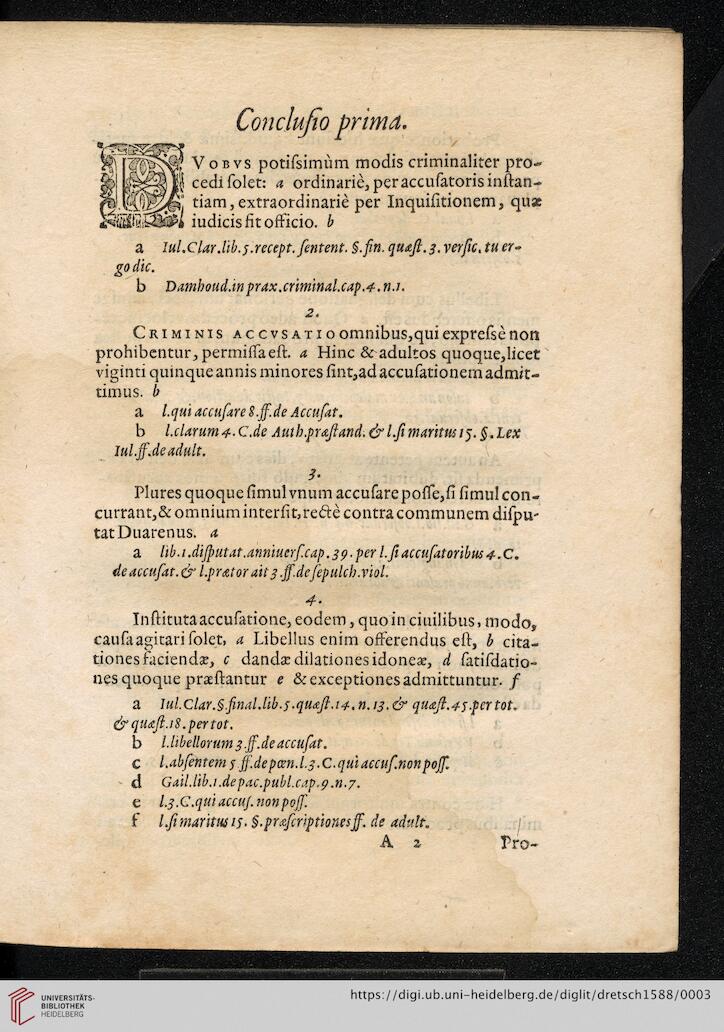 Concluſio prima.
DVOBVS potiſsimùm modis criminaliter pro-
cedi ſolet: a ordinariè, per accuſatoris inſtan-
tiam, extraordinariè per Inquiſitionem, quæ
iudicis fit officio. b
a Iul.Clar.lib.5.recept. ſentent. §. fin. quæſt. 3. verſic. tu er-
go dic.
b Damhoud.in prax.criminal.cap.4.n.1.
2.
CRIMINIS ACCVSATIO omnibus, qui expreſsè non
prohibentur, permiſſa eſt. a Hinc & adultos quoque, licet
viginti quinque annis minores ſint, ad accuſationem admit-
timus. b
a l.qui accuſare 8.ff.de Accuſat.
b l.clarum 4. C.de Auth.præſtand. & l.ſi maritus 15. §. Lex
Iul.ff.de adult.
3.
Plures quoque ſimul vnum accuſare poſſe, ſi ſimul con-
currant, & omnium interſit, rectè contra communem diſpu-
tat Duarenus. a
a lib.1.diſputat.anniuerſ.cap. 39. per l.ſi accuſatoribus 4. C.
de accuſat. & l.prætor ait 3.ff.de ſepulch.viol.
4.
Inſtituta accuſatione, eodem, quo in ciuilibus, modo,
cauſa agitari ſolet, a Libellus enim offerendus eſt, b cita-
tiones faciendæ, c dandæ dilationes idoneæ, d ſatiſdatio-
nes quoque præſtantur e & exceptiones admittuntur. f
a Iul.Clar.§.final.lib.5.quæſt.14.n.13. & quæſt.45.per tot.
& quæſt.18. per tot.
b l.libellorum 3.ff.de accuſat.
c l.abſentem 5 ff.de pœn.l.3.C.qui accuſ.non poſſ.
d Gail.lib.1.de pac.publ.cap.9.n.7.
e l.3.C.qui accuſ. non poſſ.
f l.ſi maritus 15. §.præſcriptiones ff. de adult.
A 2 Pro-
UNIVERSITÄTS-
BIBLIOTHEK
HEIDELBERG
https://digi.ub.uni-heidelberg.de/diglit/dretsch1588/0003